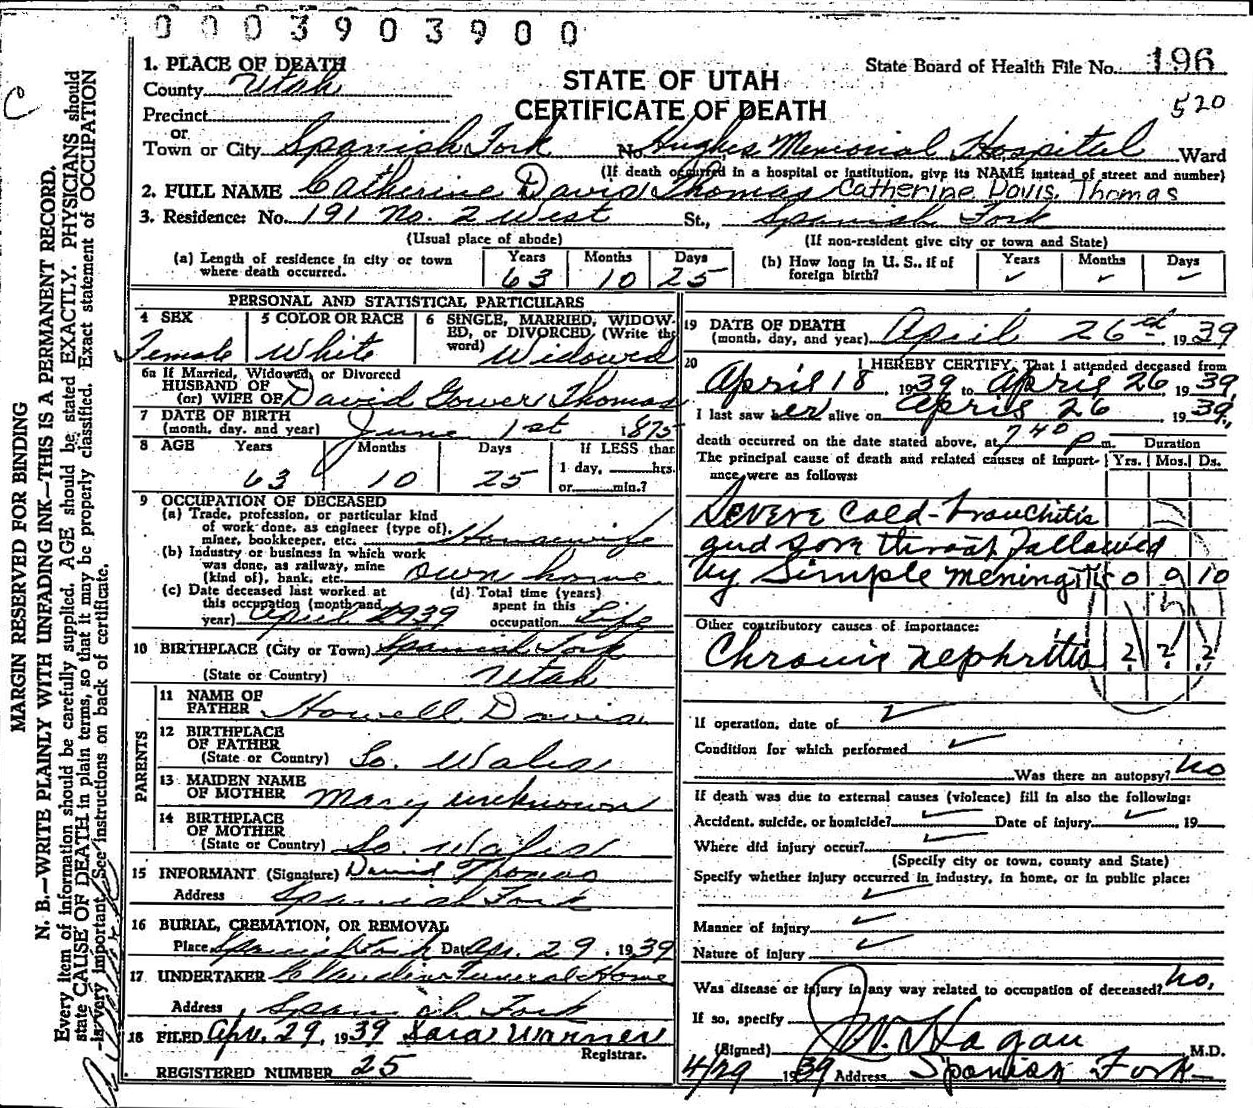 0003903900
1. PLACE OF DEATH
County Utah
STATE OF UTAH
CERTIFICATE OF DEATH
State Board of Health File No. 196
520
Precinct
or
Town or City Spanish Fork No. Hughes Memorial Hospital Ward
(If death occurred in a hospital or institution, give its NAME instead of street and number)
2. FULL NAME Catherine Davis Thomas Catherine Davis Thomas
3. Residence: No. 191 No. 2 West St., Spanish Fork
(Usual place of abode) (If non-resident give city or town and State)
(a) Length of residence in city or town where death occurred. Years 63 Months 10 Days 25
(b) How long in U. S., if of foreign birth? Years ✓ Months ✓ Days ✓
PERSONAL AND STATISTICAL PARTICULARS
4 SEX Female
5 COLOR OR RACE White
6 SINGLE, MARRIED, WIDOWED, or DIVORCED, (Write the word) Widowed
6a If Married, Widowed, or Divorced
HUSBAND OF
(or) WIFE OF David Gower Thomas
7 DATE OF BIRTH
(month, day, and year) June 1st 1875
8 AGE Years 63 Months 10 Days 25 If LESS than 1 day, hrs. or min.?
9 OCCUPATION OF DECEASED
(a) Trade, profession, or particular kind
of work done, as engineer (type of),
miner, bookkeeper, etc. Housewife
(b) Industry or business in which work
was done, as railway, mine
(kind of), bank, etc. own home
(c) Date deceased last worked at
this occupation (month and
year) April 1939
(d) Total time (years)
spent in this
occupation Life
10 BIRTHPLACE (City or Town) Spanish Fork
(State or Country) Utah
PARENTS
11 NAME OF
FATHER Howell Davis
12 BIRTHPLACE
OF FATHER
(State or Country) So. Wales
13 MAIDEN NAME
OF MOTHER Mary unknown
14 BIRTHPLACE
OF MOTHER
(State or Country) So. Wales
15 INFORMANT (Signature) David Thomas
Address Spanish Fork
16 BURIAL, CREMATION, OR REMOVAL
Place Spanish Fork Date Apr. 29, 1939
17 UNDERTAKER Funeral Home
Address Spanish Fork
18 FILED Apr. 29, 1939 Sara Warner
Registrar.
REGISTERED NUMBER 25
19 DATE OF DEATH
(month, day, and year) April 26 1939
20 I HEREBY CERTIFY, That I attended deceased from
April 18, 1939 to April 26, 1939,
I last saw her alive on April 26 1939,
death occurred on the date stated above, at 7 40 p m. Duration
The principal cause of death and related causes of importance were as follows: Yrs. Mos. Ds.
Severe Cold-Bronchitis
and sore throat followed
by Simple meningitis 0 0 10
Other contributory causes of importance:
Chronic nephritis ? ? ?
If operation, date of ✓
Condition for which performed ✓
Was there an autopsy? No
If death was due to external causes (violence) fill in also the following:
Accident, suicide, or homicide? ✓ Date of injury ✓ 19
Where did injury occur? ✓
(Specify city or town, county and State)
Specify whether injury occurred in industry, in home, or in public place:
✓
Manner of injury ✓
Nature of injury ✓
Was disease or injury in any way related to occupation of deceased? No.
If so, specify
(Signed) Hagan M.D.
4/29 1939 Address Spanish Fork
MARGIN RESERVED FOR BINDING
N. B.—WRITE PLAINLY WITH UNFADING INK—THIS IS A PERMANENT RECORD.
Every item of information should be carefully supplied. AGE should be stated EXACTLY. PHYSICIANS should
state CAUSE OF DEATH in plain terms, so that it may be properly classified. Exact statement of OCCUPATION
is very important. See instructions on back of certificate.
C